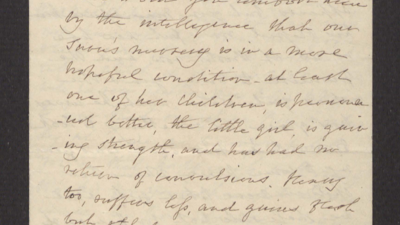 by the intelligence that our
nursery is in a more
hopeful condition - at least
one of her children, is pronoun
-ced better, the little girl, is gain
-ing strength, and has had no
return of convulsions. Henry
too, suffers less, and gains flesh
but